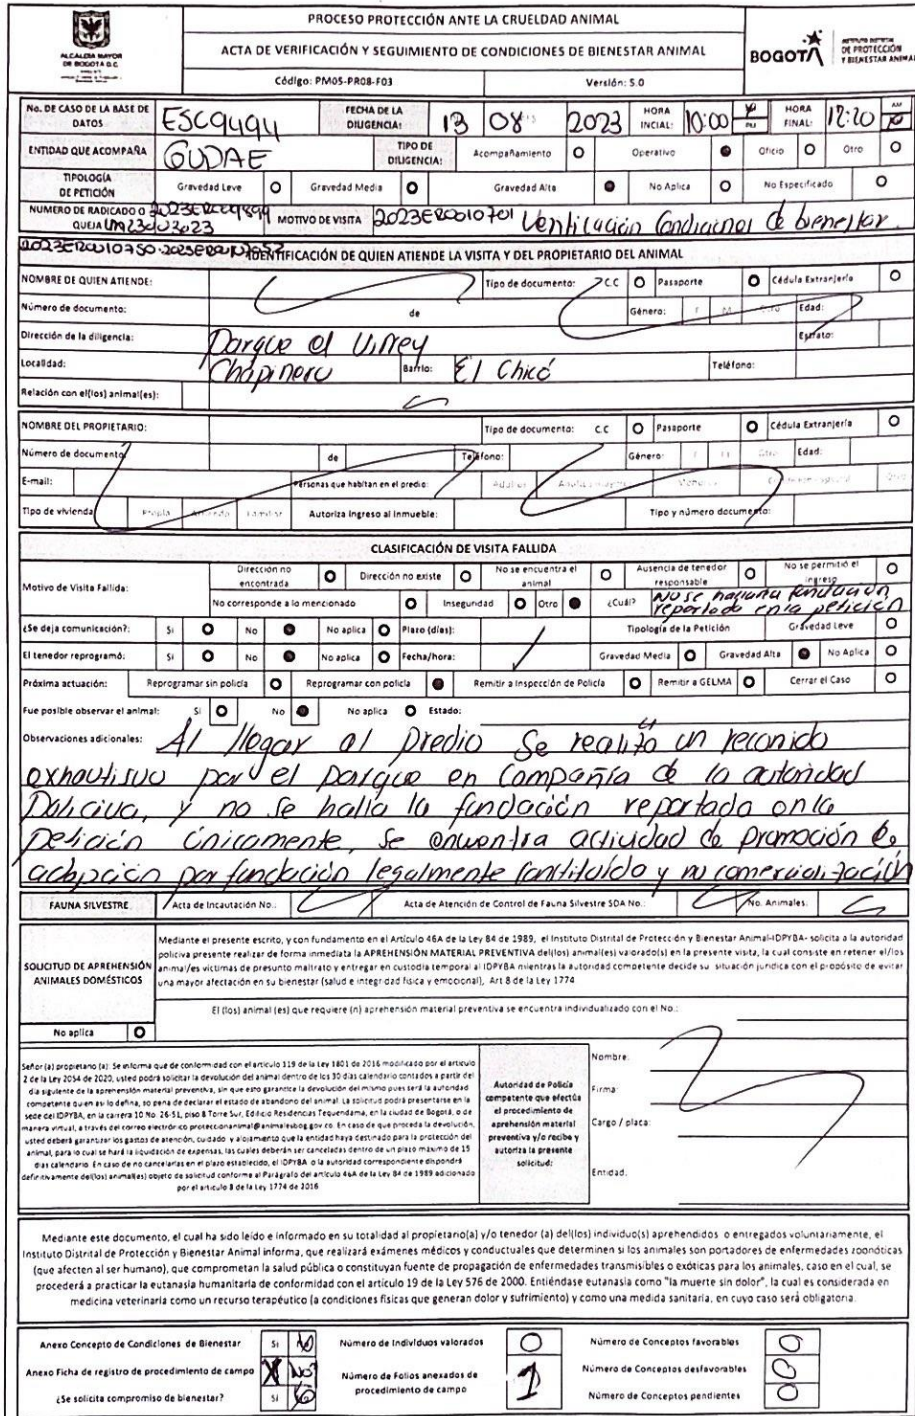 PROCESO PROTECCIÓN ANTE LA CRUELDAD ANIMAL
ACTA DE VERIFICACIÓN Y SEGUIMIENTO DE CONDICIONES DE BIENESTAR ANIMAL
Código: PM05-PR08-F03 Versión: 5.0
ALCALDÍA MAYOR
DE BOGOTÁ D.C.
BOGOTÁ
INSTITUTO DISTRITAL
DE PROTECCIÓN
Y BIENESTAR ANIMAL
No. DE CASO DE LA BASE DE DATOS ESC9494 FECHA DE LA DILIGENCIA: 13 08 2023 HORA INCIAL: 10:00 HORA FINAL: 12:20
ENTIDAD QUE ACOMPAÑA GUDAE TIPO DE DILIGENCIA: Acompañamiento Operativo Oficio Otro
TIPOLOGÍA DE PETICIÓN Gravedad Leve Gravedad Media Gravedad Alta No Aplica No Especificado
NUMERO DE RADICADO O QUEJA MOTIVO DE VISITA 2023ER0010701 Verificación Condiciones de bienestar.
IDENTIFICACIÓN DE QUIEN ATIENDE LA VISITA Y DEL PROPIETARIO DEL ANIMAL
NOMBRE DE QUIEN ATIENDE: Tipo de documento: C.C Pasaporte Cédula Extranjería
Número de documento: de Género: F M Otro Edad:
Dirección de la diligencia: Parque el Virrey Estrato:
Localidad: Chapinero Barrio: El Chicó Teléfono:
Relación con el(los) animal(es):
NOMBRE DEL PROPIETARIO: Tipo de documento: C.C Pasaporte Cédula Extranjería
Número de documento de Teléfono: Género: F M Otro Edad:
E-mail: Personas que habitan en el predio: Adultos
Tipo de vivienda Propia Arrienda Familiar Autoriza Ingreso al Inmueble: Tipo y número documento:
CLASIFICACIÓN DE VISITA FALLIDA
Motivo de Visita Fallida: Dirección no encontrada Dirección no existe No se encuentra el animal Ausencia de tenedor responsable No se permitió el ingreso
No corresponde a lo mencionado Inseguridad Otro ¿Cuál? No se halla la fundación
reportado en la petición
¿Se deja comunicación?: Si No No aplica Plazo (días): Tipología de la Petición Gravedad Leve
El tenedor reprogramó: Si No No aplica Fecha/hora: Gravedad Media Gravedad Alta No Aplica
Próxima actuación: Reprogramar sin policía Reprogramar con policía Remitir a Inspección de Policía Remitir a GELMA Cerrar el Caso
Fue posible observar el animal: Si No No aplica Estado:
Observaciones adicionales: Al llegar al predio se realizó un recorrido
exhautisvo por el parque en Compañía de la autoridad
Policiva, y no se halla la fundación reportada en la
petición únicamente, se encuentra actividad de promoción de
adopción por fundación legalmente constituído y no comercialización
FAUNA SILVESTRE Acta de Incautación No.: Acta de Atención de Control de Fauna Silvestre SDA No.: No. Animales:
SOLICITUD DE APREHENSIÓN ANIMALES DOMÉSTICOS
Mediante el presente escrito, y con fundamento en el Artículo 46A de la Ley 84 de 1989, el Instituto Distrital de Protección y Bienestar Animal-IDPYBA- solicita a la autoridad
policiva presente realizar de forma inmediata la APREHENSIÓN MATERIAL PREVENTIVA del(los) animal(es) valorado(s) en la presente visita, la cual consiste en retener el/los
animal/es víctimas de presunto maltrato y entregar en custodia temporal al IDPYBA mientras la autoridad competente decide su situación jurídica con el propósito de evitar
una mayor afectación en su bienestar (salud e integridad física y emocional), Art 8 de la Ley 1774
El (los) animal (es) que requiere (n) aprehensión material preventiva se encuentra individualizado con el No.:
No aplica
Señor (a) propietario (a): Se informa que de conformidad con el artículo 119 de la Ley 1801 de 2016 modificado por el artículo
2 de la Ley 2054 de 2020, usted podrá solicitar la devolución del animal dentro de los 30 días calendario contados a partir del
día siguiente de la aprehensión material preventiva, sin que esto garantice la devolución del mismo pues será la autoridad
competente quien así lo defina, so pena de declarar el estado de abandono del animal. La solicitud podrá presentarse en la
sede del IDPYBA, en la carrera 10 No. 26-51, piso 8 Torre Sur, Edificio Residencias Tequendama, en la ciudad de Bogotá, o de
manera virtual, a través del correo electrónico proteccionanimal@animalesbog.gov.co. En caso de que proceda la devolución,
usted deberá garantizar los gastos de atención, cuidado y alojamiento que la entidad haya destinado para la protección del
animal, para lo cual se hará la liquidación de expensas, las cuales deberán ser canceladas dentro de un plazo máximo de 15
días calendario. En caso de no cancelarlas en el plazo establecido, el IDPYBA o la autoridad correspondiente dispondrá
definitivamente del(los) animal(es) objeto de solicitud conforme al Parágrafo del artículo 46A de la Ley 84 de 1989 adicionado
por el artículo 8 de la Ley 1774 de 2016
Autoridad de Policía
competente que efectúa
el procedimiento de
aprehensión material
preventiva y/o recibe y
autoriza la presente
solicitud:
Nombre:
Firma:
Cargo / placa:
Entidad:
Mediante este documento, el cual ha sido leído e informado en su totalidad al propietario(a) y/o tenedor (a) del(los) individuo(s) aprehendidos o entregados voluntariamente, el
Instituto Distrital de Protección y Bienestar Animal informa, que realizará exámenes médicos y conductuales que determinen si los animales son portadores de enfermedades zoonóticas
(que afecten al ser humano), que comprometan la salud pública o constituyan fuente de propagación de enfermedades transmisibles o exóticas para los animales, caso en el cual, se
procederá a practicar la eutanasia humanitaria de conformidad con el artículo 19 de la Ley 576 de 2000. Entiéndase eutanasia como "la muerte sin dolor", la cual es considerada en
medicina veterinaria como un recurso terapéutico (a condiciones físicas que generan dolor y sufrimiento) y como una medida sanitaria, en cuyo caso será obligatoria.
Anexo Concepto de Condiciones de Bienestar Si No Número de Individuos valorados 0 Número de Conceptos favorables 0
Anexo Ficha de registro de procedimiento de campo X No Número de Folios anexados de procedimiento de campo 1 Número de Conceptos desfavorables 0
¿Se solicita compromiso de bienestar? Si No Número de Conceptos pendientes 0